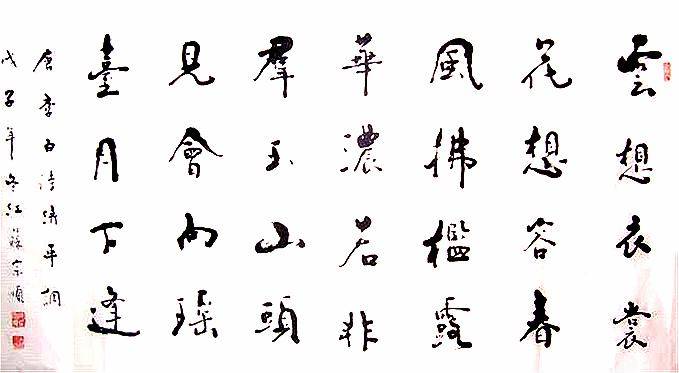 雲想衣裳
花想容春
風拂檻露
華濃若非
羣玉山頭
見會向瑤
臺月下逢
唐李白詩清平調
戊子年冬蘇宗順